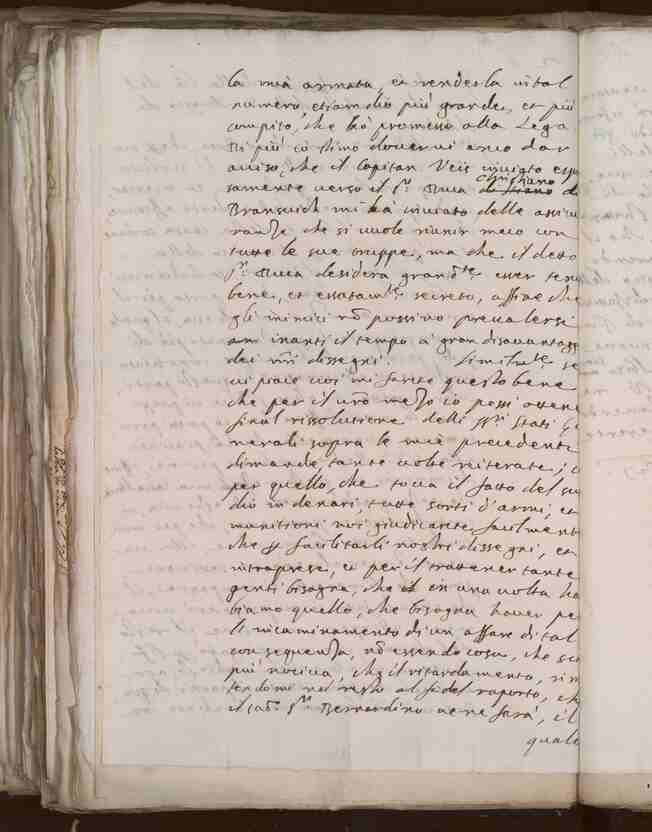 la mia armata, et renderla in tal
numero, etiamdio più grande, et più
compito, che hò promesso alla Lega
Di più io stimo dovervi anco dar
aviso, che il Capitan Veis inviato
samente verso il Sr. Duca Christiano
Bransuich mi hà inviato delle assicu
ranze che si vuole riunir meco con
tutte le sue truppe, ma che il detto
Sr. Duca desidera grandte. esser tenu
bene, et essatamte. secreto, affine che
gli inimici nõ possino prevalersi
inanti il tempo à gran disavantagg
dei nri dissegni. Similmte. se
vi piace voi mi farete questo bene
che per il vrõ mezo io possi ottene
final rissolutione delli SSri Stati Ge
nerali sopra le mie precedenti
dimande, tante volte reiterate, e
per quello, che tocca il fatto del su
dio in denari, tutte sorti d'armi, et
munitioni, voi giudicarete facilment
che facilitarli nostri dissegni, et
intraprese, et per il trattener tante
genti bisogna, che in una volta ha
biamo quello, che bisogna haver pe
l'incaminamento di un affare di tal
consequenza, nõ essendo cosa, che sia
più nociva, che il ritardamento, rim
tendomi nel resto al fidel raporto, ch
il Sr. Bernardino ve ne farà, il
quale